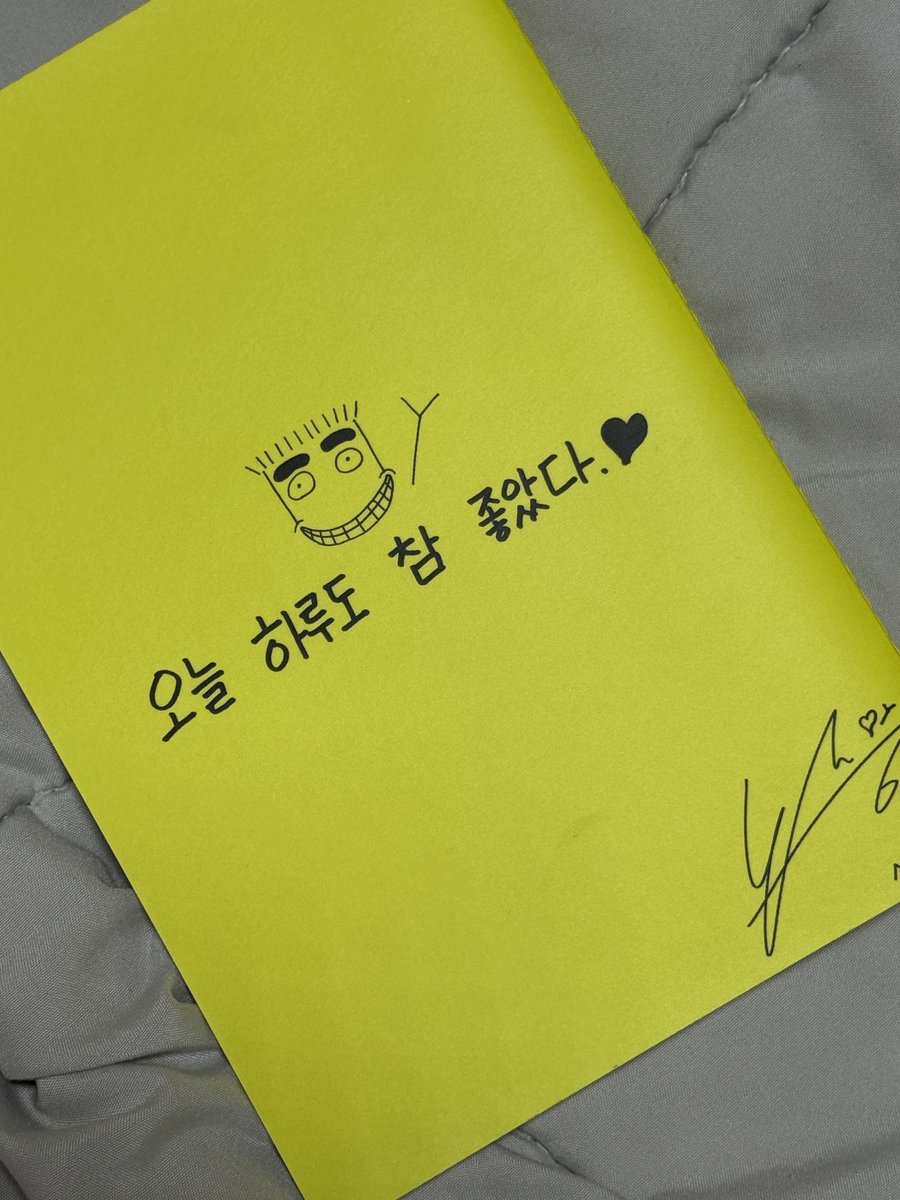 오늘 하루도 참 좋았다.♥